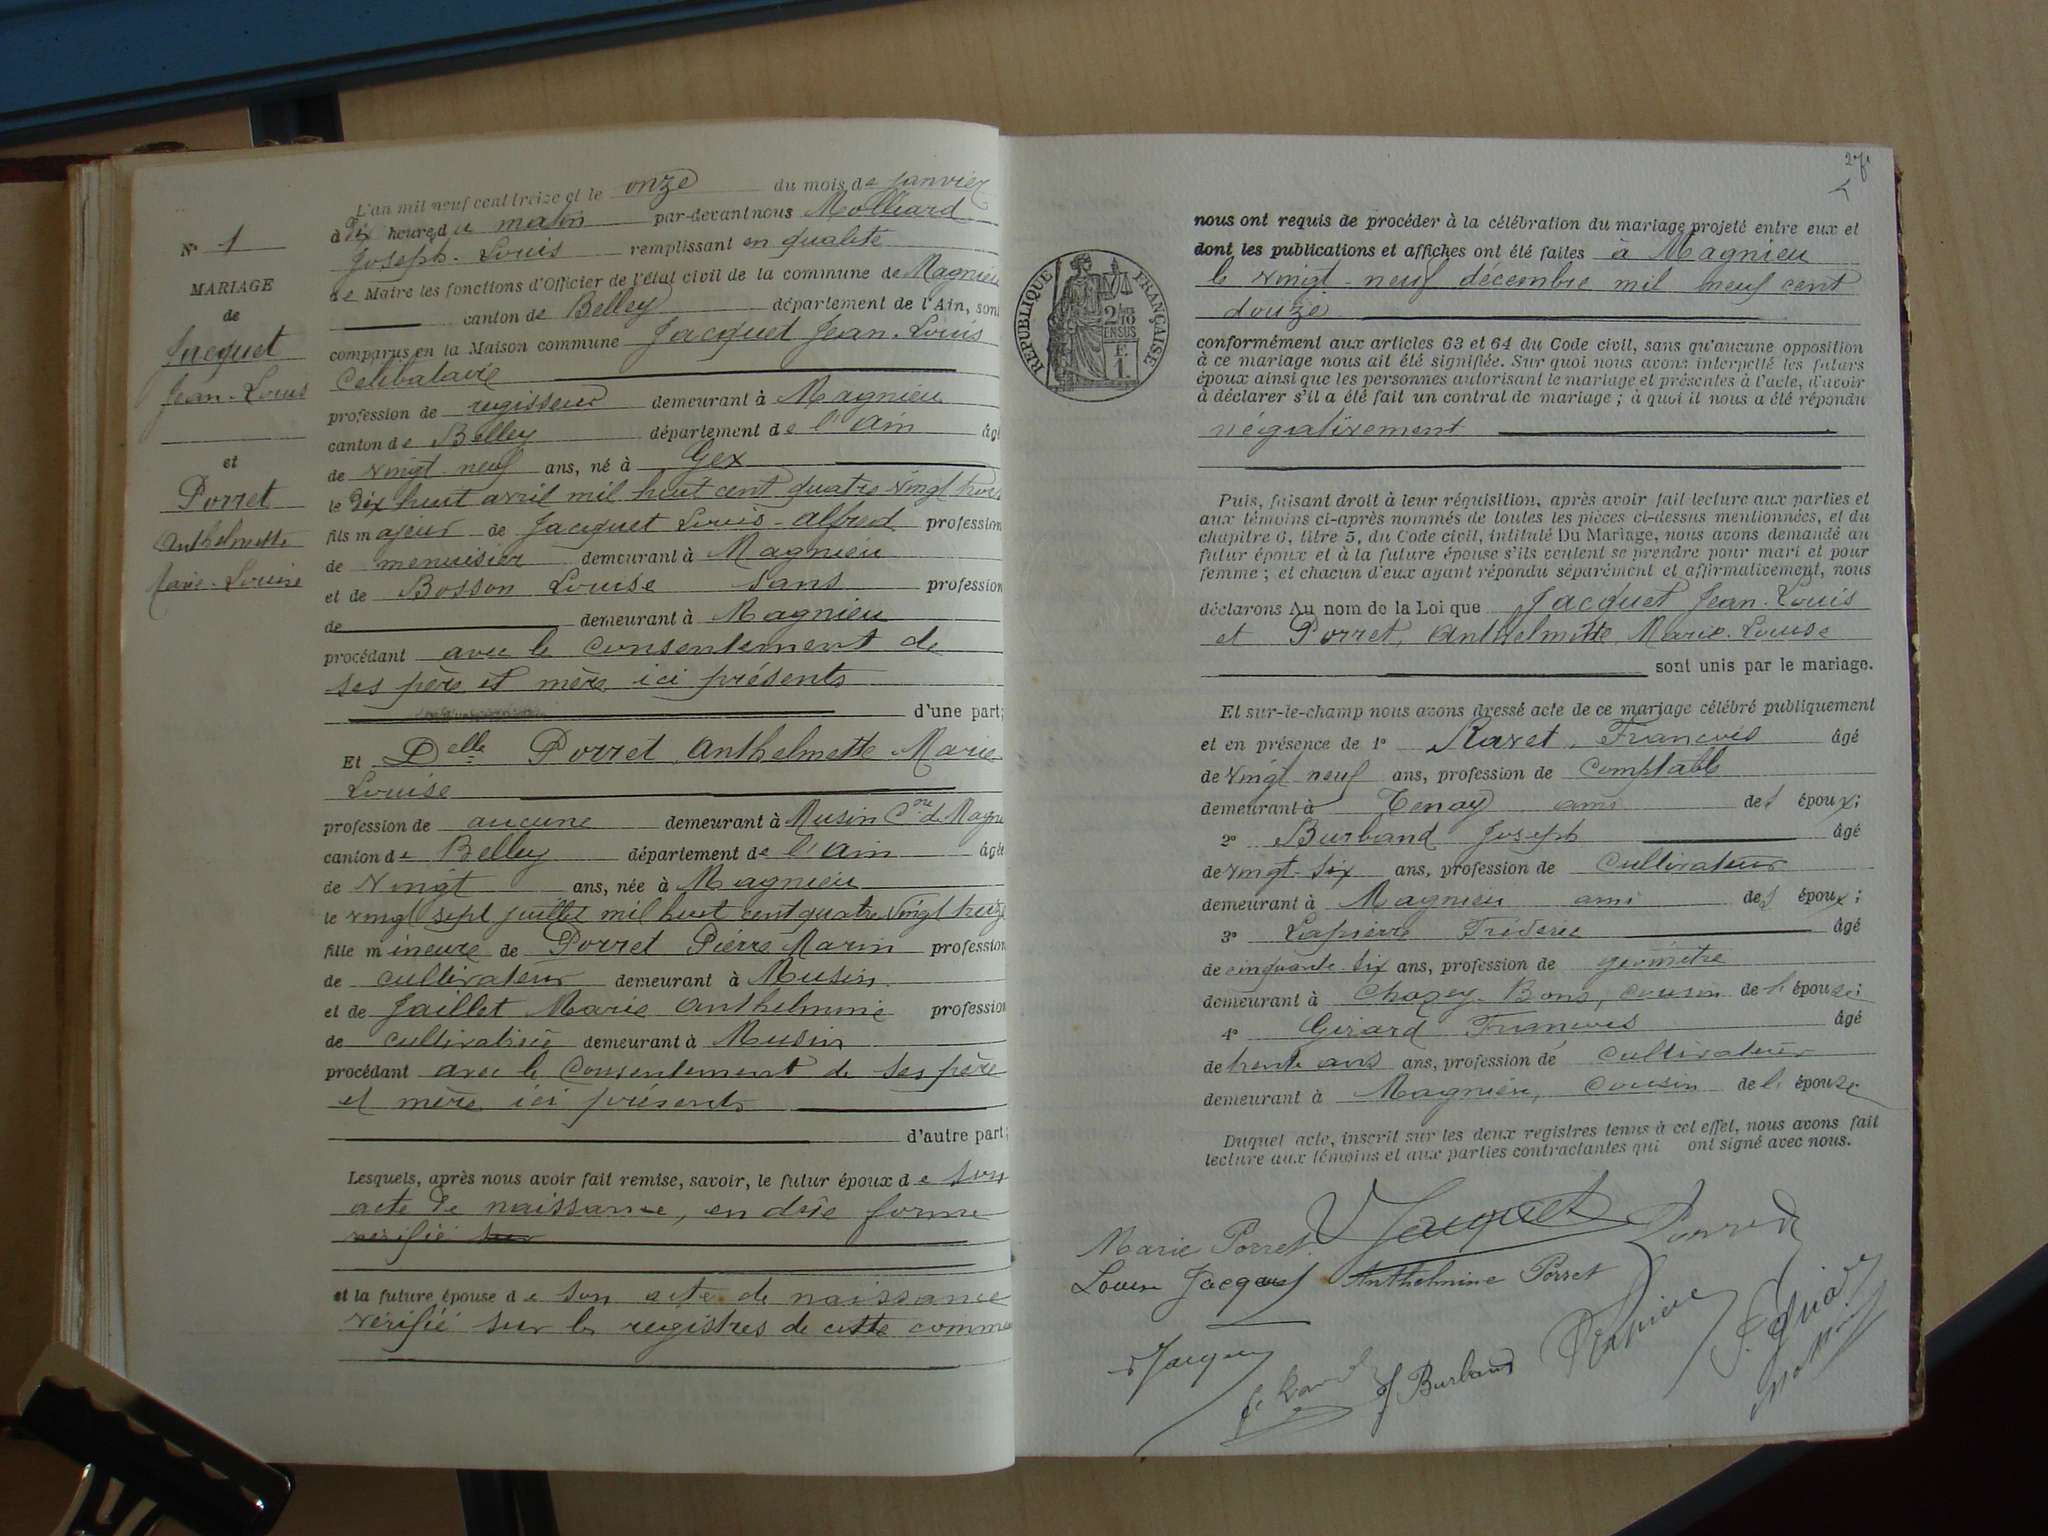 N° 1
MARIAGE
de
Jacquet
Jean-Louis
et
Porret
Anthelmette
Marie-Louise
L'an mil neuf cent treize et le onze du mois de janvier
à Dix heures du matin par-devant nous Molliard
Joseph-Louis remplissant en qualité
de Maire les fonctions d'Officier de l'état civil de la commune de Magnieu
canton de Belley département de l'Ain, sont
comparus en la Maison commune Jacquet Jean-Louis
Célibataire
profession de régisseur demeurant à Magnieu
canton de Belley département de l'Ain âgé
de vingt-neuf ans, né à Gex
le Dix huit avril mil huit cent quatre vingt trois
fils majeur de Jacquet Louis-Alfred profession
de menuisier demeurant à Magnieu
et de Bosson Louise sans profession
de demeurant à Magnieu
procédant avec le consentement de
ses père et mère ici présents
d'une part;
Et Delle Porret Anthelmette Marie
Louise
profession de aucune demeurant à Musin Cne de Magnieu
canton de Belley département de l'Ain âgée
de vingt ans, née à Magnieu
le vingt sept juillet mil huit cent quatre vingt treize
fille mineure de Porret Pierre Marin profession
de cultivateur demeurant à Musin
et de Jaillet Marie Anthelmine profession
de cultivatrice demeurant à Musin
procédant avec le consentement de ses père
et mère ici présents
d'autre part;
Lesquels, après nous avoir fait remise, savoir, le futur époux de son
acte de naissance, en dûe forme
vérifié
et la future épouse de son acte de naissance
vérifié sur les registres de cette commune
nous ont requis de procéder à la célébration du mariage projeté entre eux et
dont les publications et affiches ont été faites à Magnieu
le vingt-neuf décembre mil neuf cent
douze
RÉPUBLIQUE FRANÇAISE
2/10
EN SUS
F.
1.
conformément aux articles 63 et 64 du Code civil, sans qu'aucune opposition
à ce mariage nous ait été signifiée. Sur quoi nous avons interpellé les futurs
époux ainsi que les personnes autorisant le mariage et présentes à l'acte, d'avoir
à déclarer s'il a été fait un contrat de mariage; à quoi il nous a été répondu
négativement
Puis, faisant droit à leur réquisition, après avoir fait lecture aux parties et
aux témoins ci-après nommés de toutes les pièces ci-dessus mentionnées, et du
chapitre 6, titre 5, du Code civil, intitulé Du Mariage, nous avons demandé au
futur époux et à la future épouse s'ils veulent se prendre pour mari et pour
femme; et chacun d'eux ayant répondu séparément et affirmativement, nous
déclarons Au nom de la Loi que Jacquet Jean-Louis
et Porret, Anthelmette Marie-Louise
sont unis par le mariage.
Et sur-le-champ nous avons dressé acte de ce mariage célébré publiquement
et en présence de 1° Ravet François âgé
de vingt neuf ans, profession de comptable
demeurant à Tenay ami des époux;
2° Burband Joseph âgé
de vingt-six ans, profession de cultivateur
demeurant à Magnieu ami des époux;
3° Lapierre Fréderic âgé
de cinquante-six ans, profession de géomètre
demeurant à Chazey-Bons, cousin de l'épouse;
4° Girard François âgé
de trente ans ans, profession de cultivateur
demeurant à Magnieu, cousin de l'épouse
Duquel acte, inscrit sur les deux registres tenus à cet effet, nous avons fait
lecture aux témoins et aux parties contractantes qui ont signé avec nous.
Jacquet Porret
Marie Porret
Louise Jacquet Anthelmine Porret
Jacquet
J Burband Lapierre